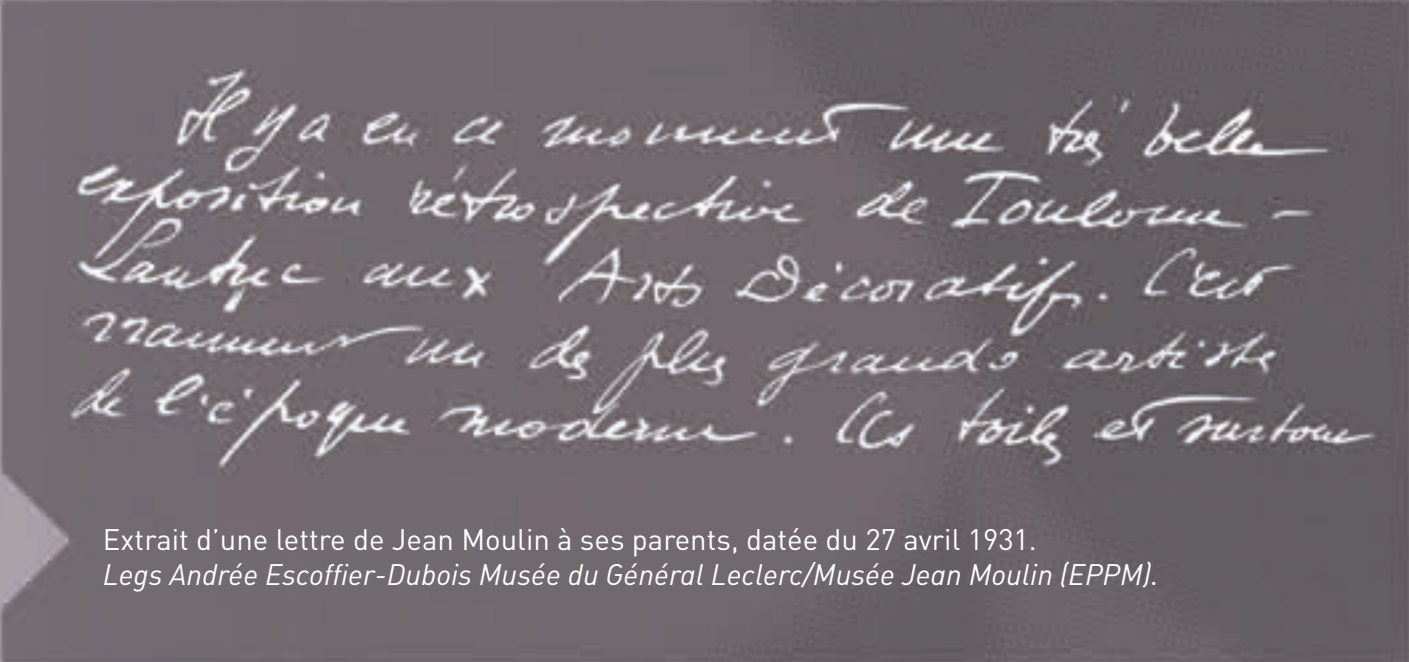 Il y a en ce moment une très belle
exposition rétrospective de Toulouse-
Lautrec aux Arts Décoratifs. C'est
vraiment un des plus grands artistes
de l'époque moderne. Ces toiles et surtout
Extrait d'une lettre de Jean Moulin à ses parents, datée du 27 avril 1931.
Legs Andrée Escoffier-Dubois Musée du Général Leclerc/Musée Jean Moulin (EPPM).